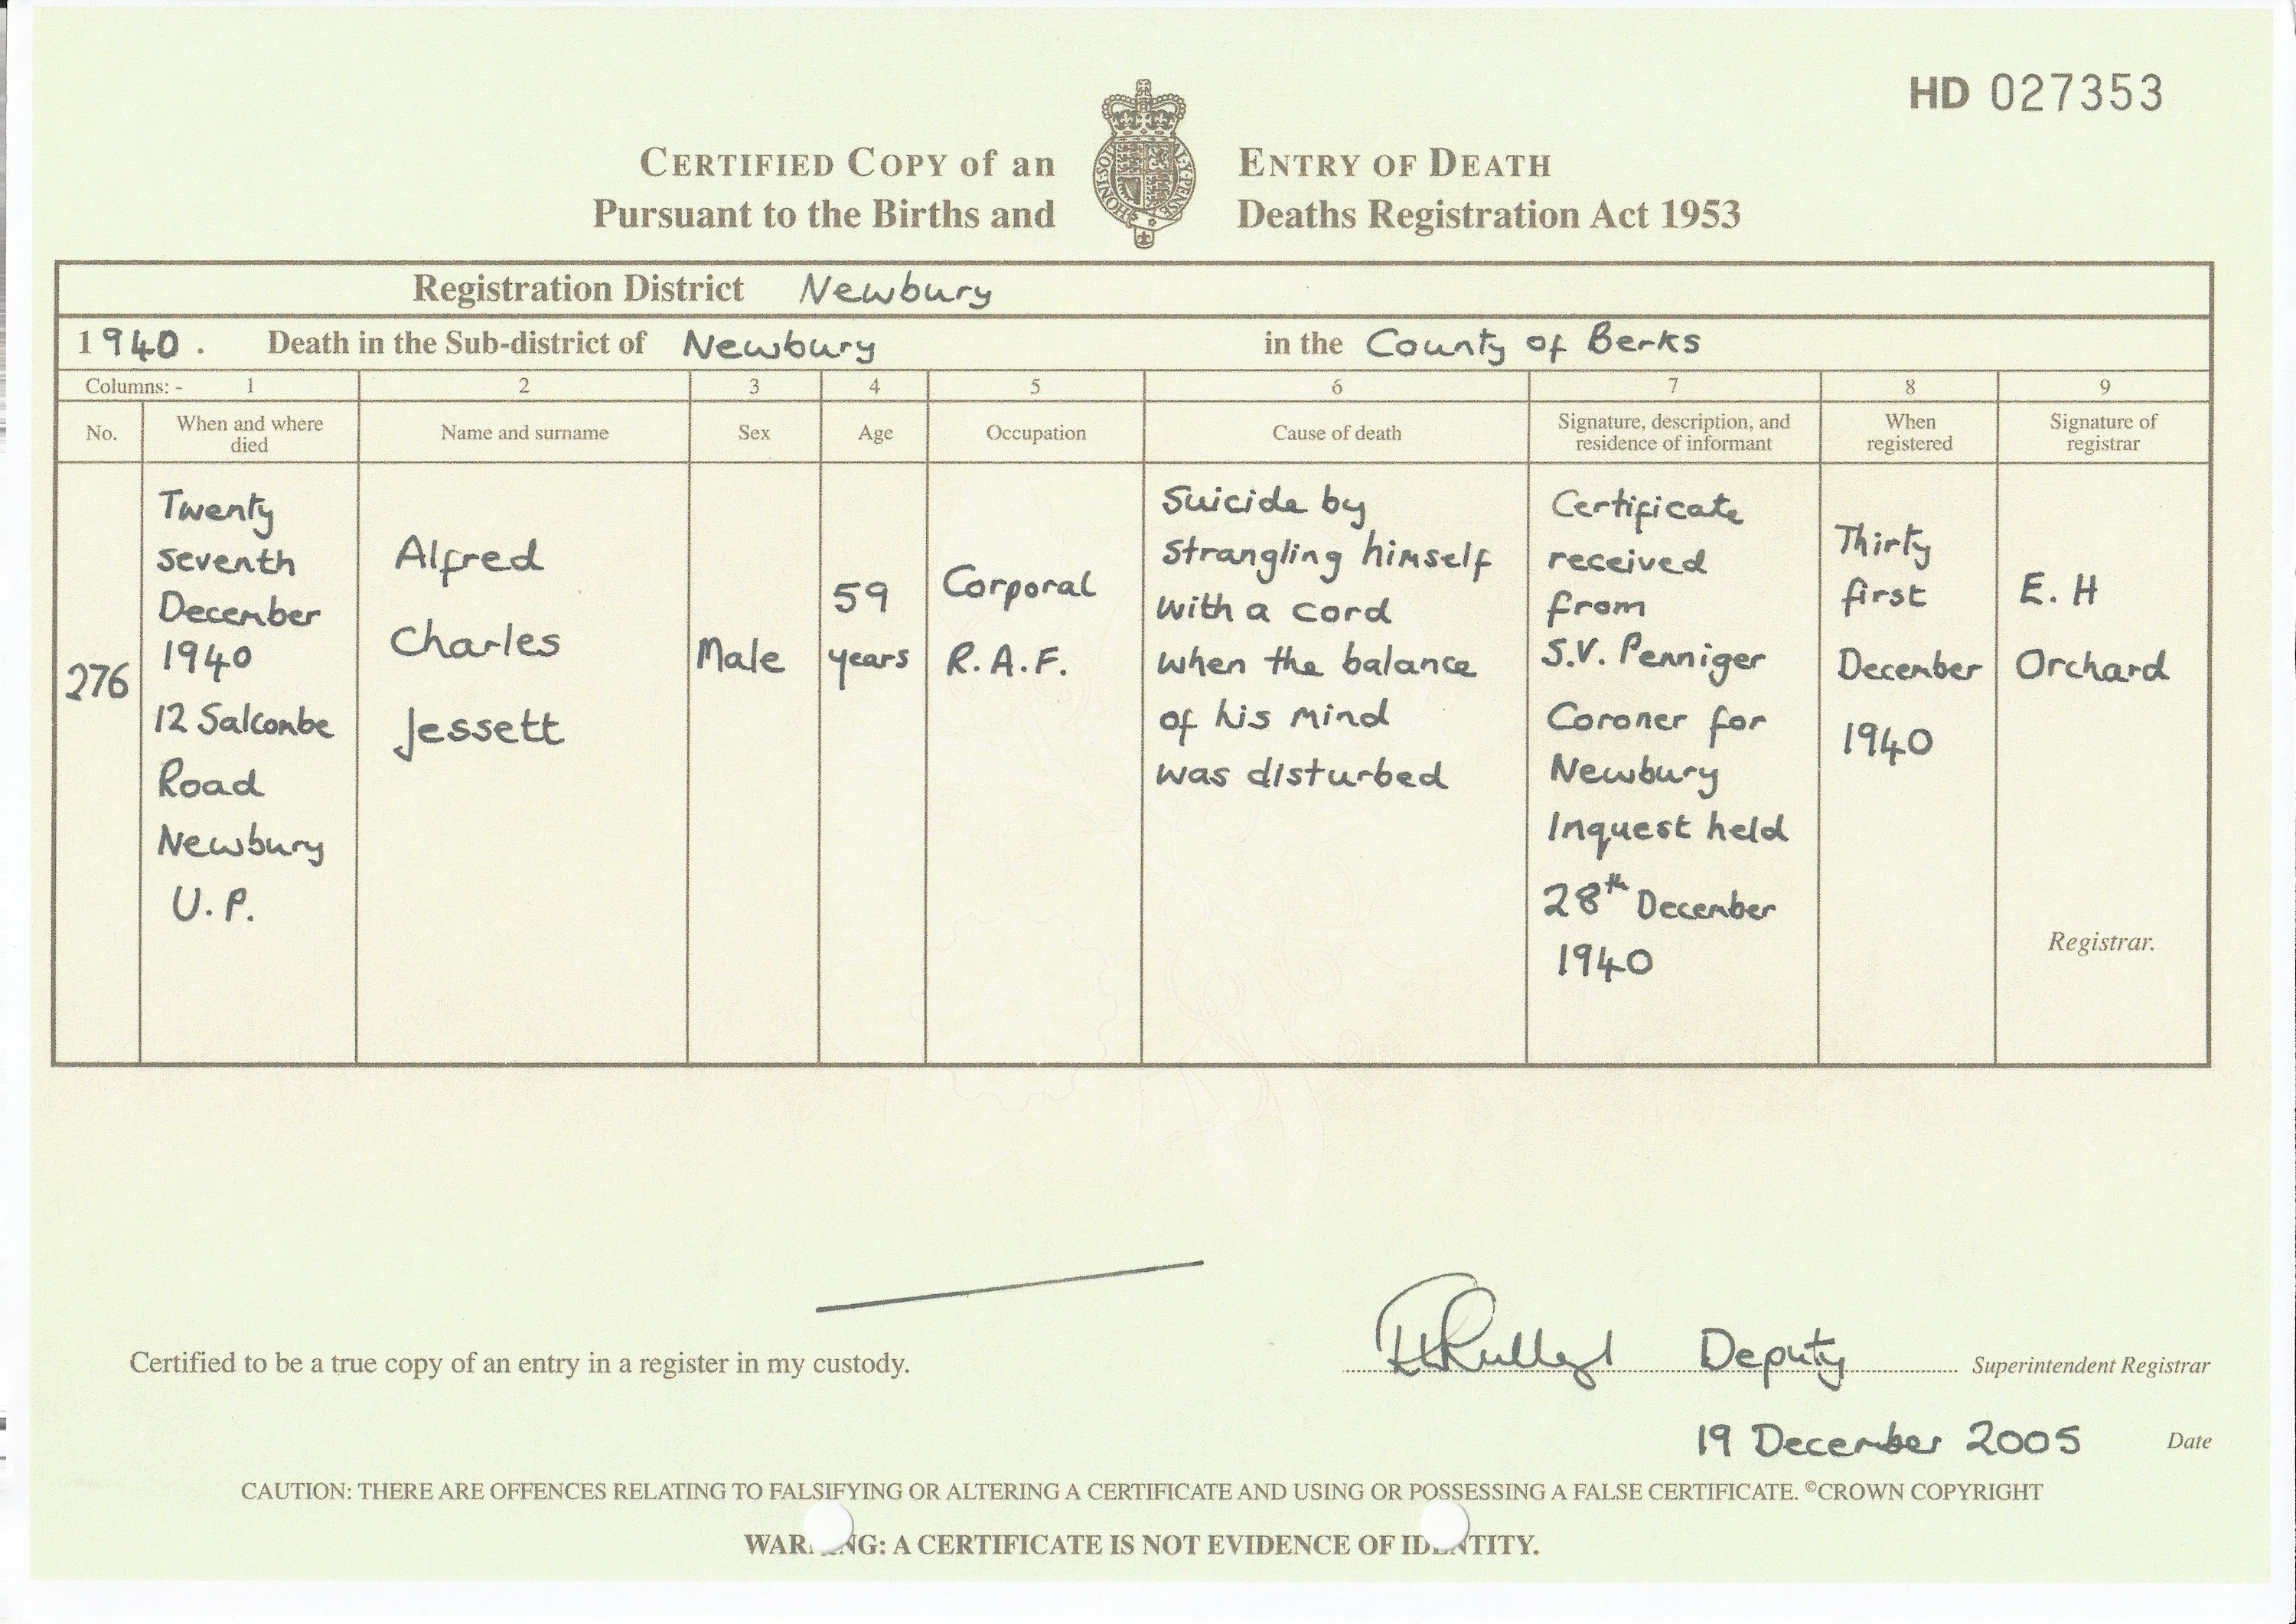 HD 027353
CERTIFIED COPY of an ENTRY OF DEATH
Pursuant to the Births and Deaths Registration Act 1953
HONI·SOI
AL·Y·PENSE
Registration District Newbury
1940. Death in the Sub-district of Newbury in the County of Berks
Columns: - 1 2 3 4 5 6 7 8 9
No.
When and where
died
Name and surname
Sex
Age
Occupation
Cause of death
Signature, description, and
residence of informant
When
registered
Signature of
registrar
276
Twenty
seventh
December
1940
12 Salcombe
Road
Newbury
U.P.
Alfred
Charles
Jessett
Male
59
years
Corporal
R.A.F.
Suicide by
strangling himself
with a cord
when the balance
of his mind
was disturbed
Certificate
received
from
S.V. Penniger
Coroner for
Newbury
Inquest held
28th December
1940
Thirty
first
December
1940
E. H
Orchard
Registrar.
Certified to be a true copy of an entry in a register in my custody.
Deputy Superintendent Registrar
19 December 2005 Date
CAUTION: THERE ARE OFFENCES RELATING TO FALSIFYING OR ALTERING A CERTIFICATE AND USING OR POSSESSING A FALSE CERTIFICATE. ©CROWN COPYRIGHT
WARNING: A CERTIFICATE IS NOT EVIDENCE OF IDENTITY.